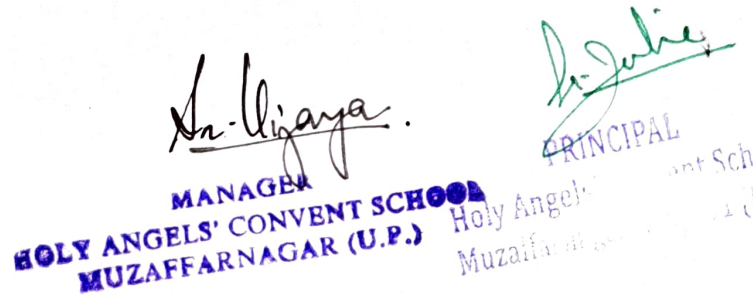 Sr. Vijaya.
MANAGER
HOLY ANGELS' CONVENT SCHOOL
MUZAFFARNAGAR (U.P.)
Sr. Julie
PRINCIPAL
Holy Angels